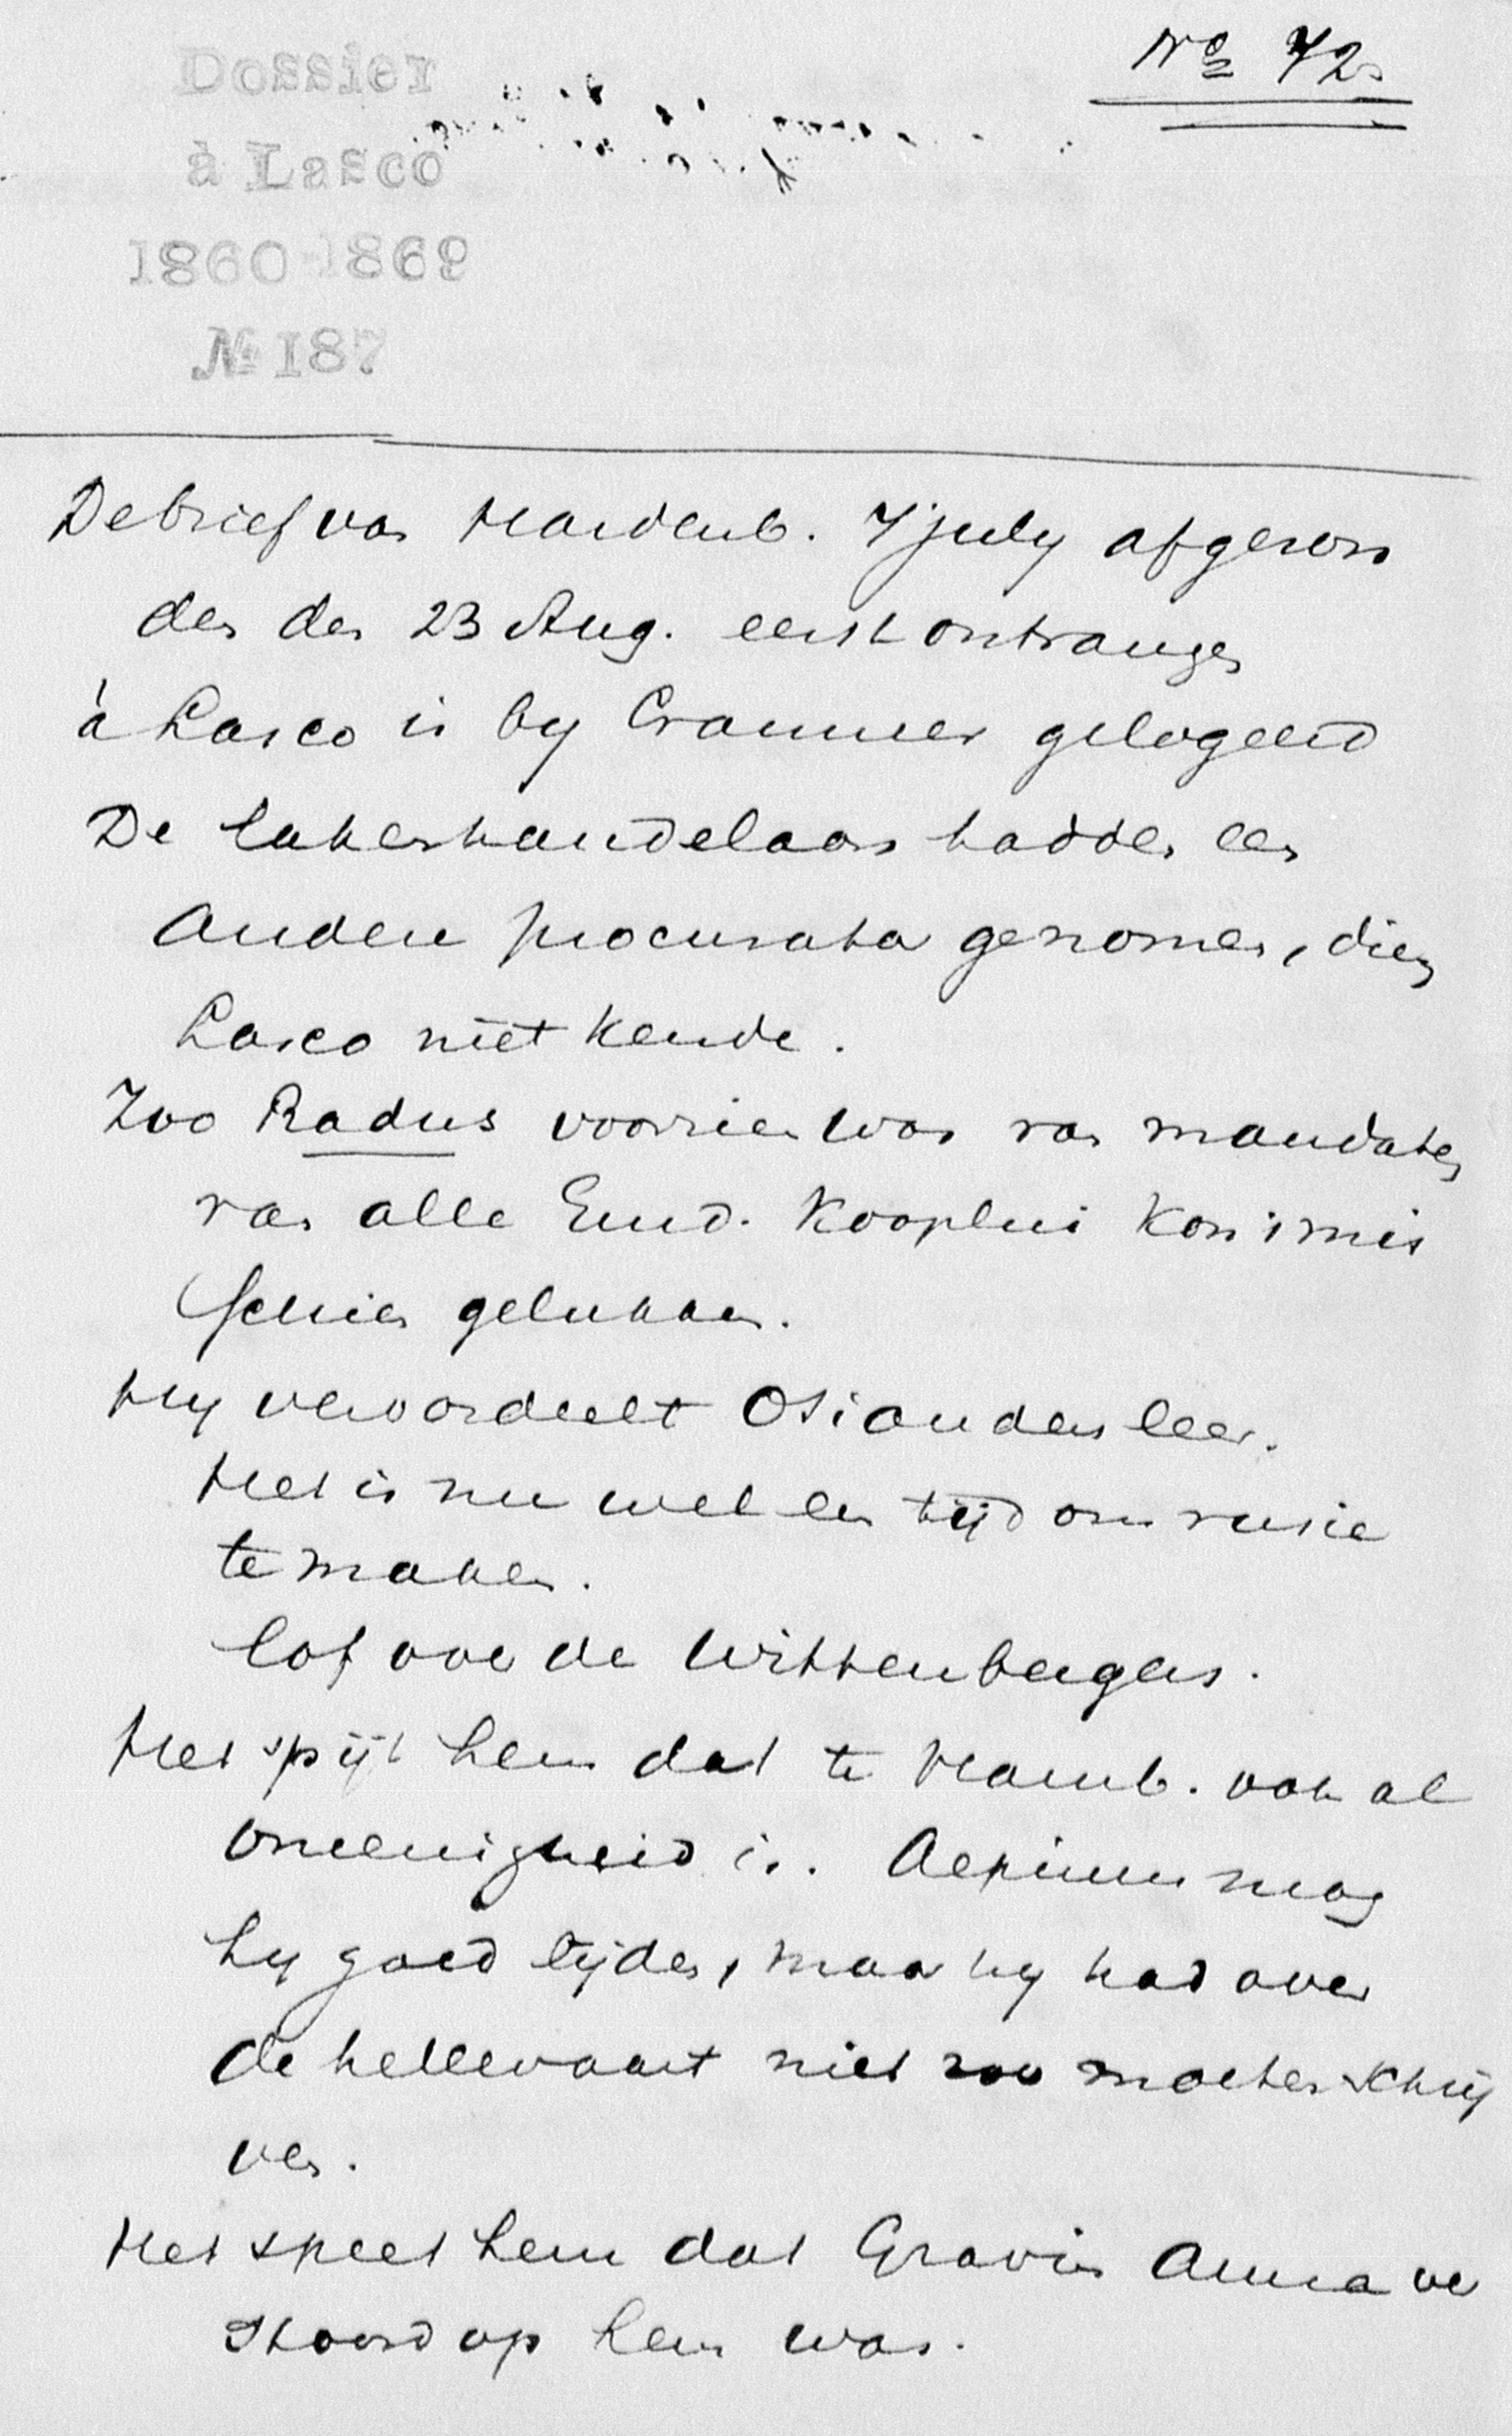 Dossier
à Lasco
1860-1869
№ 187
No 72
De brief van Hardenb. 7 july afgezon
den den 23 Aug. eerst ontvangen
à Lasco is by Cranmer gelogeerd
De lakenhandelaars hadden een
andere procurator genomen, dien
Lasco niet kende.
Zoo Radus voorzien was van mandaten
van alle Emd. kooplui kon 't mis
schien gelukken.
Hy veroordeelt Osianders leer.
Het is nu wel een tijd om ruzie
te maken.
Lof voor de Wittenbergers.
Het spijt hem dat te Hamb. ook al
oneenigheid is. Aepinus mag
hy goed lijden, maar hy had over
de hellevaart niet zoo moeten schrij
ven.
Het speet hem dat Gravin Anna ver
stoord op hem was.